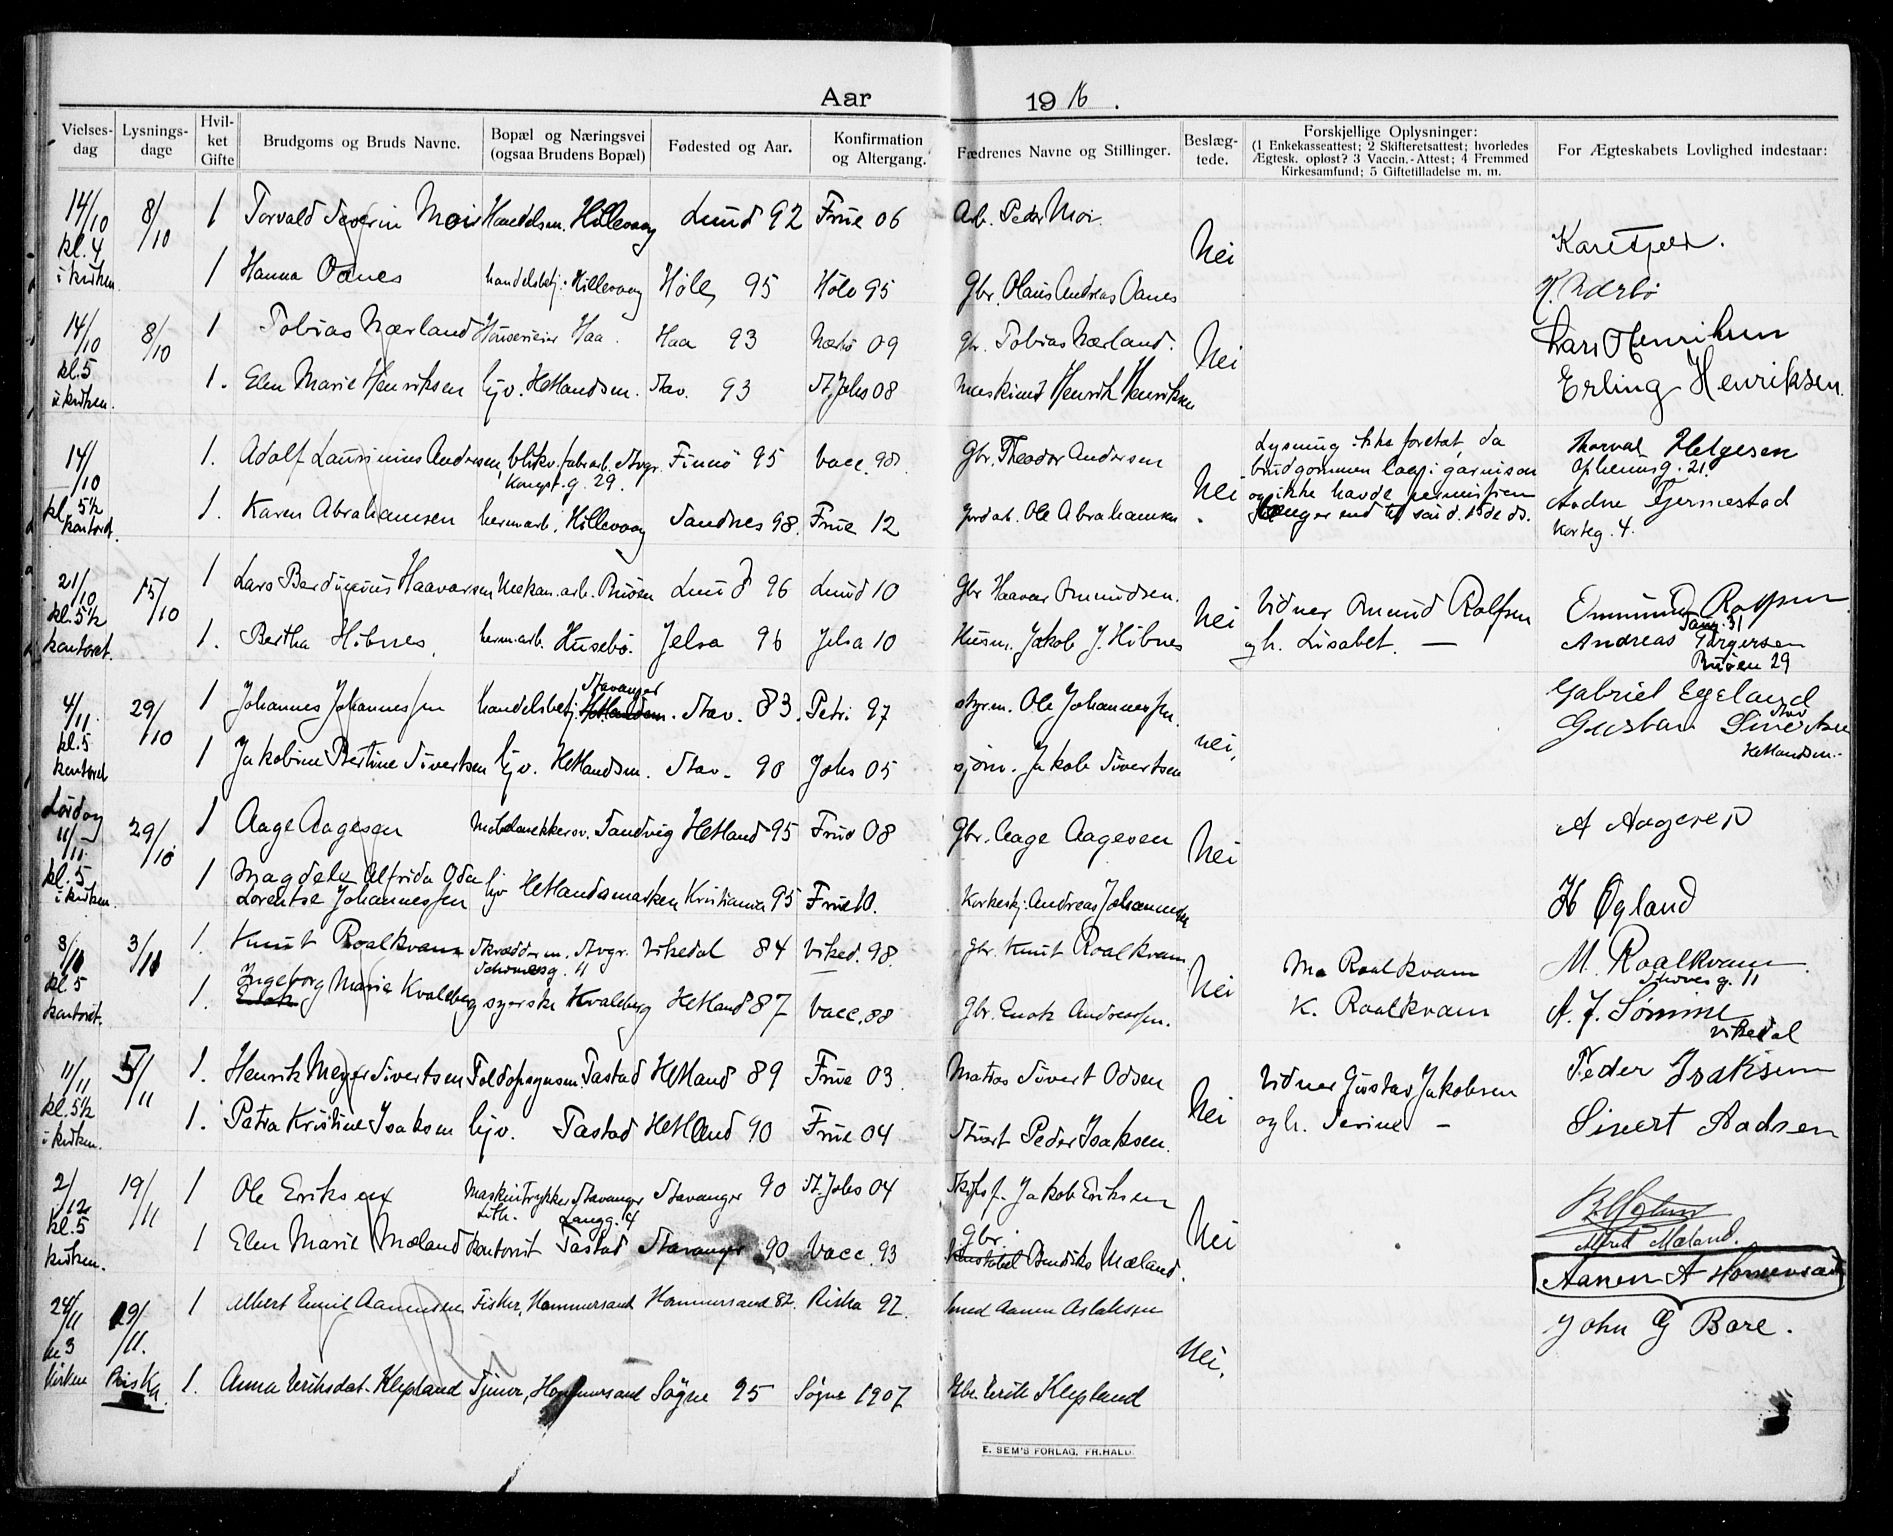 Aar 1916.
Vielses-dag | Lysnings-dage | Hvil-ket Gifte | Brudgoms og Bruds Navne. | Bopæl og Næringsvei (ogsaa Brudens Bopæl) | Fødested og Aar. | Konfirmation og Altergang. | Fædrenes Navne og Stillinger. | Beslæg-tede. | Forskjellige Oplysninger: (1 Enkekasseattest; 2 Skifteretsattest; hvorledes Ægtesk. opløst? 3 Vaccin.-Attest; 4 Fremmed Kirkesamfund; 5 Giftetilladelse m. m. | For Ægteskabets Lovlighed indestaar:
14/10 kl. 4 i kirken. | 8/10 | 1 | Torvald Severin Moi | Handelsm. Hillevaag | Lund 92 | Frue 06 | Arb. Peder Moi. | Nei | Kare
1 | Hanna Oanes | handelsbetj. Hillevaag | Høle 95 | Høle 95 | Gbr. Olaus Andreas Oanes
14/10 kl. 5 i kirken. | 8/10 | 1 | Tobias Nærland | Haa. | Haa 93 | Nærbø 09 | Gbr. Tobias Nærland. | Nei | Lars Henriksen
1. | Elen Marie Henriksen | hjv. Hetlandsm. | Stav. 93 | St. Johs 08 | Maskinist Henrik Henriksen | Erling Henriksen.
14/10 kl. 5½ kontoret. | 1. | Adolf Laurinius Andersen, | blikv. fabrarb. Stvgr. Kongst. g. 29. | Finnø 95 | Vacc. 98. | Gbr. Theodor Andersen | Nei. | Lysning ikke foretat, da brudgommen laa i garnison og ikke havde permission længer end til | Thorval Helgesen 21.
1. | Karen Abrahamsen | hermarb. Hillevaag | Sandnes 98. | Frue 12 | Jordarb. Ole Abrahamsen | Aadne Tjermestad Korteg. 4.
21/10 kl. 5½ kontoret. | 15/10 | 1 | Lars Berduinius Haavarsen | Mekan. arb. Buøen | Lund 96 | Lund 10 | Gbr Haavar Omundsen. | Nei | Vidner Omund Rolfsen | Ommund Rolfsen
1. | Bertha Hibnes, | hermarb. Husebø. | Jelsa 96 | Jelsa 10 | Husm. Jakob J. Hibnes | og h. Lisabet. — | Andreas Torgersen Buøen 29
4/11 kl. 5 kontoret | 29/10 | 1 | Johannes Johannessen | handelsbetj. Stavanger Hetlandsm. | Stav. 83. | Petri 97 | styrm. Ole Johannessen. | nei, | Gabriel Egeland Stav
1 | Jakobine Bertine Sivertsen | hjv. Hetlandsm. | Stav. 90 | Johs 05 | sjøm. Jakob Sivertsen | Gustav Sivertsen Hetlandsm.
Lørdag 11/11. kl. 5 i kirken. | 29/10 | 1 | Aage Aagesen | Møbelsnekkersv. Sandvig | Hetland 95 | Frue 08 | Gbr. Aage Aagesen | Nei | A Aagesen
1 | Magdele Alfrida Oda Lorentse Johannessen | hjv Hetlandsmarken | Kristiania 95 | Frue 10. | Korkeskj. Andreas Johannessen | H Øgland
3/11 kl 5 kontoret. | 3/11 | 1. | Knut Roalkvam | Skrædderm. Stvgr. | Vikedal 84 | Viked. 98. | gbr. Knut Roalkvam | Nei | Ma Roalkvam | M. Roalkvam. g. 11
1. | Ingeborg Marie Kvaleberg | syerske Kvaleberg | Hetland 87 | Vacc. 88 | Gbr. Enok Andreassen. | K. Roalkvam | A. J. Sømme Vikedal
11/11 kl. 5½ i kirken. | 5/11 | 1. | Henrik Meyer Sivertsen | Toldopsynsm Tastad | Hetland 89 | Frue 03. | Matros Sivert Odsen | Nei | Vidner Gustav Jakobsen | Peder Isaksen
1. | Petra Kristine Isaksen | hjv. Tastad | Hetland 90 | Frue 04 | Stuert Peder Isaksen. | og h. Serine — | Sivert Aadsen
2/12 kl. 5 kirken. | 19/11 | 1 | Ole Eriksen | Maskintrykker Stavanger Lith. Langg. 4 | Stavanger 90 | St. Johs 04 | Skibsf. Jakob Eriksen | Nei
1 | Elen Marie Mæland | Kontorist Tastad | Stavanger 90 | Vacc. 93 | Gbr. Konstabel Bendiks Mæland. | Alfred Mæland.
24/11 kl 3 kirken | 19/11. Riska. | 1 | Albert Emil Aanensen | Fisker, Hommersand | Hommersand 87. | Riska 92 | Smed Aanen Aslaksen | Nei. | Aanen A Hommersand
1. | Anna Eriksdat. Klepland | Tjener, Hommersand | Søgne 95 | Søgne 1907 | Gbr. Erik Klepland | John G Bore.
E. SEM'S FORLAG. FR.HALD.